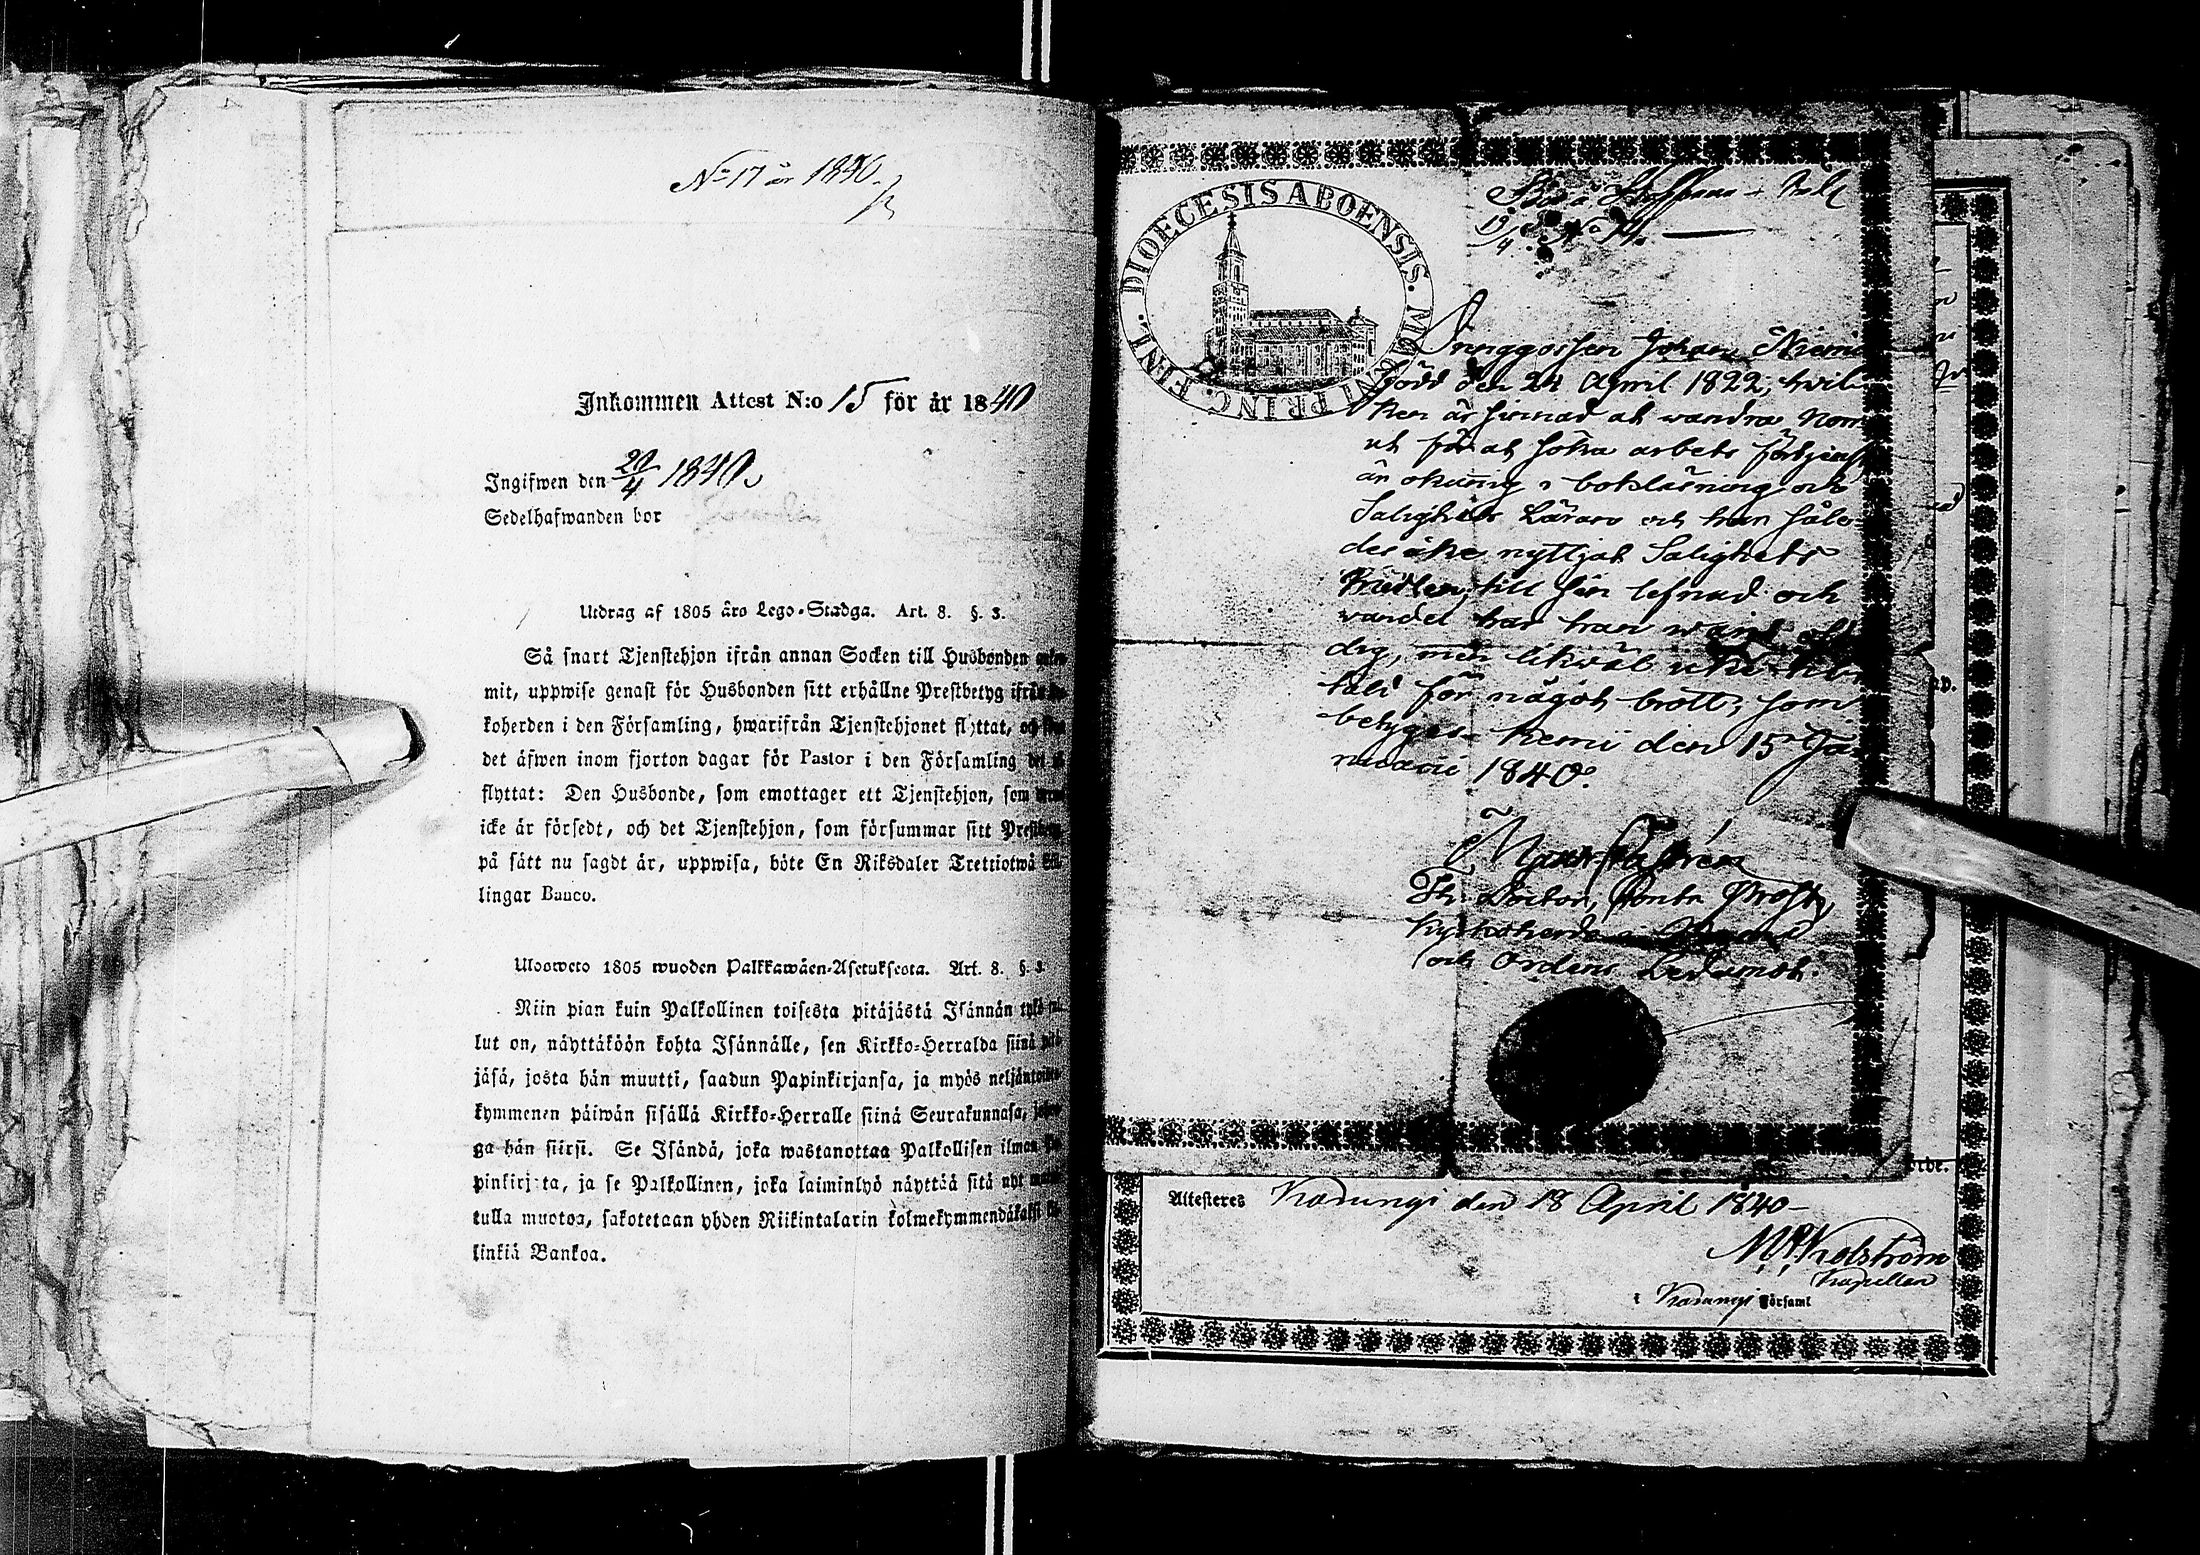 No 17 år 1840.
Inkommen Attest N:o 15 för år 1840
Ingifwen den 20/4 1840.
Sedelhafwanden bor
Utdrag af 1805 års Lego-Stadga. Art. 8. §. 3.
Så snart Tjenstehjon ifrån annan Socken till Husbonden
mit, uppwise genast för Husbonden sitt erhållne Prestbetyg ifrån
koherden i den Församling, hwarifrån Tjenstehjonet flyttat, och
det äfwen inom fjorton dagar för Pastor i den Församling
flyttat: Den Husbonde, som emottager ett Tjenstehjon, som
icke är försedt, och det Tjenstehjon, som försummar sitt
på sätt nu sagdt är, uppwisa, böte En Riksdaler Trettiotwå
lingar Banco.
Ulosweto 1805 wuoden Palkkawäen-Asetuksesta. Art. 8. §. 3.
Niin pian kuin Palkollinen toisesta pitäjästä Isännän
lut on, näyttäköön kohta Isännälle, sen Kirkko-Herralda siinä
jäsä, josta hän muutti, saadun Papinkirjansa, ja myös
kymmenen päiwän sisällä Kirkko-Herralle siinä Seurakunnasa,
ga hän siirsi. Se Isändä, joka wastanottaa Palkollisen ilman
pinkirjata, ja se Palkollinen, joka laiminlyö näyttää sitä nyt
tulla muotoa, sakotetaan yhden Riikintalarin kolmekymmendäkaksi
linkiä Bankoa.
DIOECESIS ABOENSIS. MAGNI PRINC. FINL.
Drenggossen Johan Niemi
född den 24 April 1822, hvil-
ken är sinnad at wandra Norr
ut för at söka arbets förtjenst
är okunnig i bokläsning och
Salighets Läran och han såle-
des icke nyttjat Salighets
Medlen, till sin lefnad och
wandel har han warit
dig, men likväl icke
tald för något brott, som
betygas. Kemi den 15 Ja-
nuarii 1840.
Th. Doctor, Contr. Prost,
Kyrkoherde i
och Ordens Ledamot.
Attesteres Karungi den 18 April 1840
Kapellan
i Karungi Församl